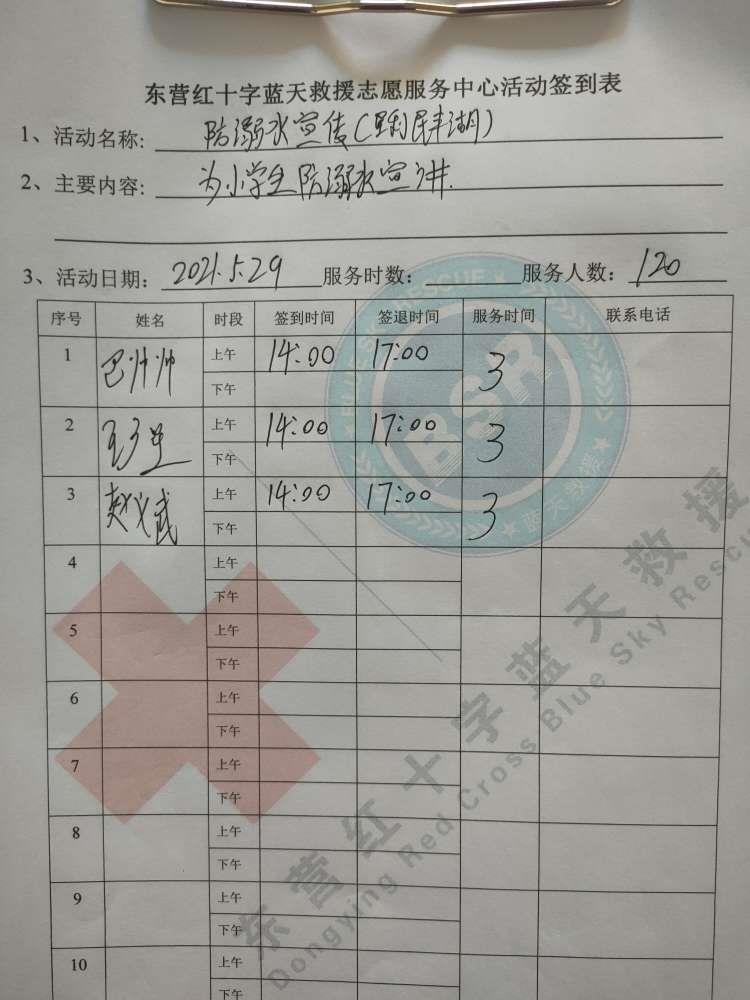 东营红十字蓝天救援志愿服务中心活动签到表
1、活动名称: 防溺水宣传(垦利民丰湖)
2、主要内容: 为小学生防溺水宣讲.
3、活动日期: 2021.5.29 服务时数: 服务人数: 120
序号 姓名 时段 签到时间 签退时间 服务时间 联系电话
1 巴帅帅 上午 14:00 17:00 3
下午
2 上午 14:00 17:00 3
下午
3 赵义武 上午 14:00 17:00 3
下午
4 上午
下午
5 上午
下午
6 上午
下午
7 上午
下午
8 上午
下午
9 上午
下午
10 上午
下午
BLUE SKY RESCUE
BSR
蓝天救援
东营红十字蓝天救援
Dongying Red Cross Blue Sky Rescu